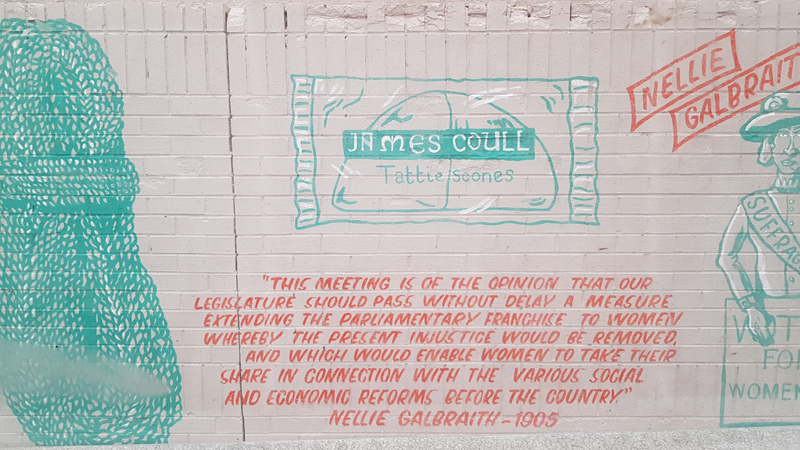 NELLIE
GALBRAITH
JAMES COULL
Tattie scones
"THIS MEETING IS OF THE OPINION THAT OUR
LEGISLATURE SHOULD PASS WITHOUT DELAY A MEASURE
EXTENDING THE PARLIAMENTARY FRANCHISE TO WOMEN
WHEREBY THE PRESENT INJUSTICE WOULD BE REMOVED,
AND WHICH WOULD ENABLE WOMEN TO TAKE THEIR
SHARE IN CONNECTION WITH THE VARIOUS SOCIAL
AND ECONOMIC REFORMS BEFORE THE COUNTRY."
NELLIE GALBRAITH - 1905
SUFFRAG
WOMEN